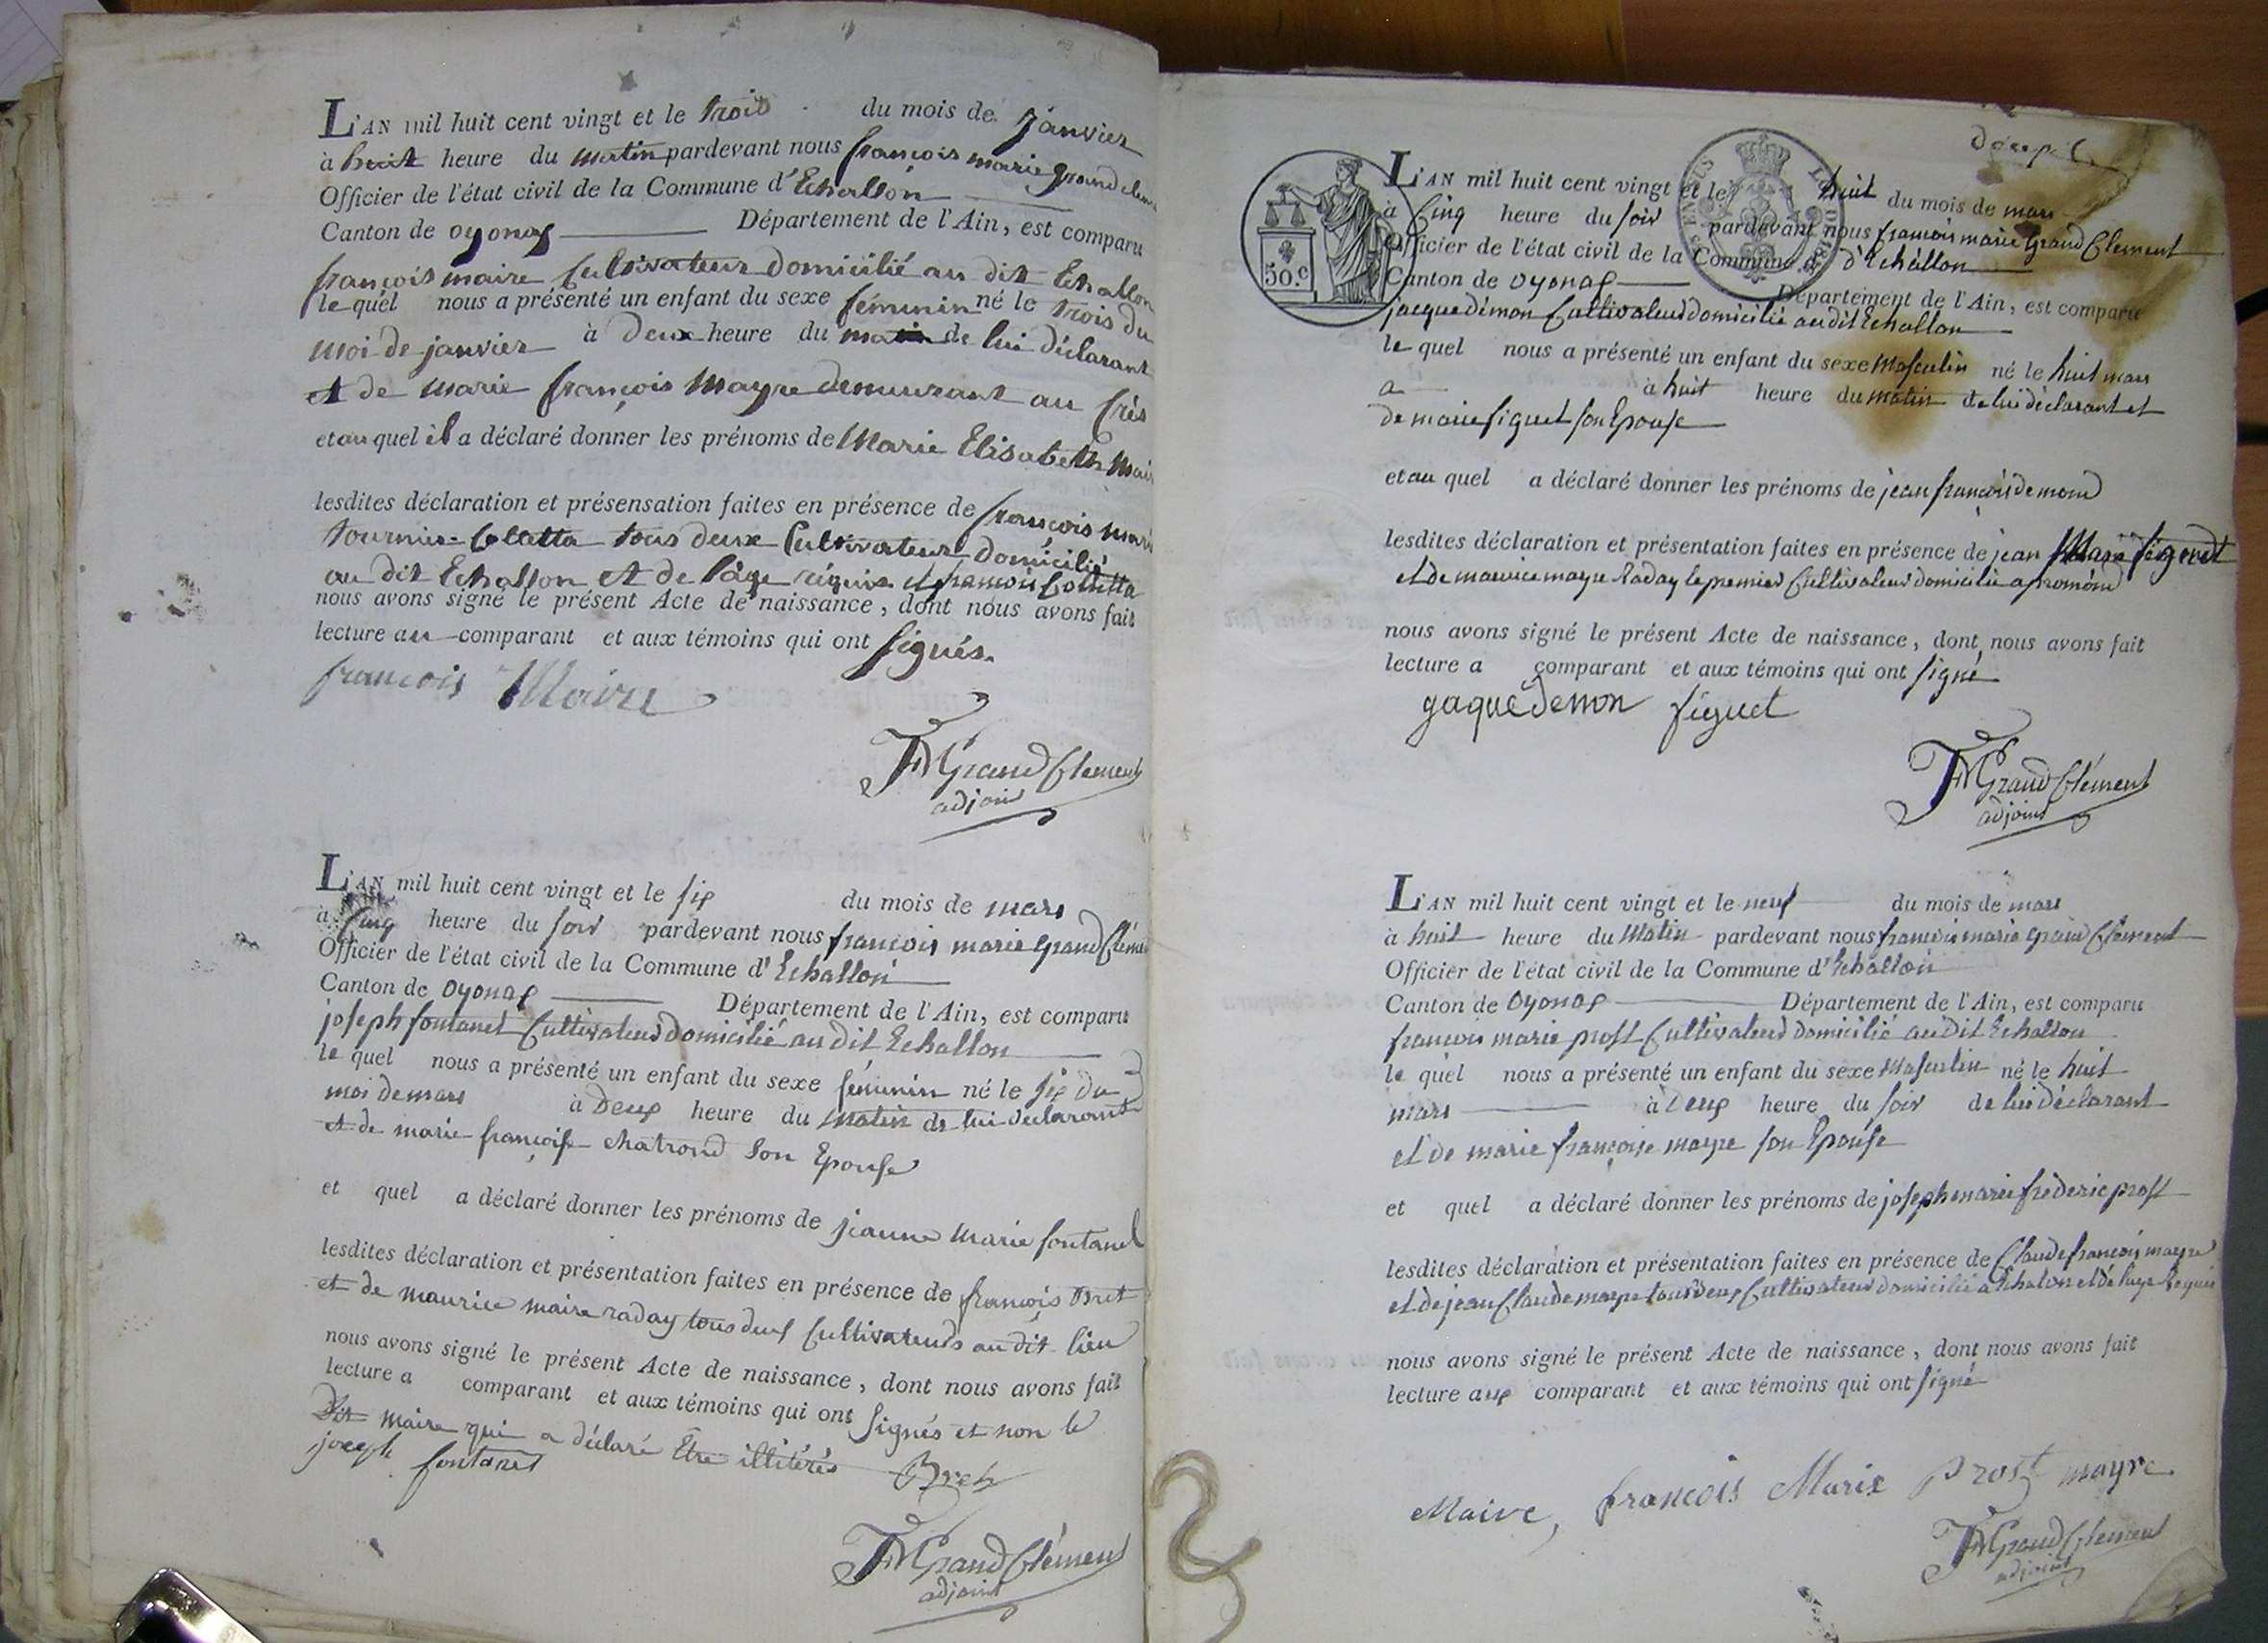 L'AN mil huit cent vingt et le trois du mois de janvier
à huit heure du matin pardevant nous françois marie grand clem
Officier de l'état civil de la Commune d'Echallon
Canton de oyonax Département de l'Ain, est comparu
françois maire Cultivateur domicilié au dit Echallon
le quel nous a présenté un enfant du sexe féminin né le trois du
moi de janvier à deux heure du matin de lui déclarant
et de marie françois Mayre demeurant au Crés
et au quel il a déclaré donner les prénoms de Marie Elisabeth Mair
lesdites déclaration et présensation faites en présence de françois mari
tournier Colletta tous deux Cultivateurs domiciliés
au dit Echallon et de l'âge réquis et françois Colletta
nous avons signé le présent Acte de naissance, dont nous avons fait
lecture au comparant et aux témoins qui ont signés.
françois Maire
FM Grand Clément
adjoint
L'AN mil huit cent vingt et le six du mois de mars
à Cinq heure du soir pardevant nous françois marie grand Cléme
Officier de l'état civil de la Commune d'Echallon
Canton de oyonax Département de l'Ain, est comparu
joseph fontanel Cultivateur domicilié au dit Echallon
le quel nous a présenté un enfant du sexe féminin né le six du
moi de mars à deux heure du matin de lui déclarant
et de marie françoise chatrond son Epouse
et quel a déclaré donner les prénoms de jeanne marie fontanel
lesdites déclaration et présentation faites en présence de françois Bret
et de maurice maire raday tous deux Cultivateurs au dit lieu
nous avons signé le présent Acte de naissance, dont nous avons fait
lecture a comparant et aux témoins qui ont signés et non le
dit maire qui a déclaré Etre illitérés
joseph fontanel Bret
FM Grand Clément
adjoint
50.c
L'AN mil huit cent vingt et le huit du mois de mars
à Cinq heure du soir pardevant nous françois marie Grand Clement
Officier de l'état civil de la Commune d'Echallon
Canton de oyonax Département de l'Ain, est comparu
jacque démon Cultivateur domicilié au dit Echallon
le quel nous a présenté un enfant du sexe masculin né le huit mars
a à huit heure du matin de lui déclarant et
de marie siguet son Epouse
et au quel a déclaré donner les prénoms de jean françois demond
lesdites déclaration et présentation faites en présence de jean
et de maurice mayre Raday le premier Cultivateur domicilié a
nous avons signé le présent Acte de naissance, dont nous avons fait
lecture a comparant et aux témoins qui ont signé
gaque demon siguet
FM Grand Clément
adjoint
L'AN mil huit cent vingt et le neuf du mois de mars
à huit heure du Matin pardevant nous françois marie grand Clement
Officier de l'état civil de la Commune d'Echallon
Canton de Oyonax Département de l'Ain, est comparu
françois marie prost Cultivateur domicilié au dit Echallon
le quel nous a présenté un enfant du sexe Masculin né le huit
mars à deux heure du soir de lui déclarant
et de marie françoise mayre son Epouse
et quel a déclaré donner les prénoms de joseph marie fréderic prost
lesdites déclaration et présentation faites en présence de Claude françois mayre
et de jean Claude mayre tous deux Cultivateur domicilié a Echalon et de l'age Requis
nous avons signé le présent Acte de naissance, dont nous avons fait
lecture aux comparant et aux témoins qui ont signé
Maire, françois Marie Prost mayre
FM Grand Clement
adjoint